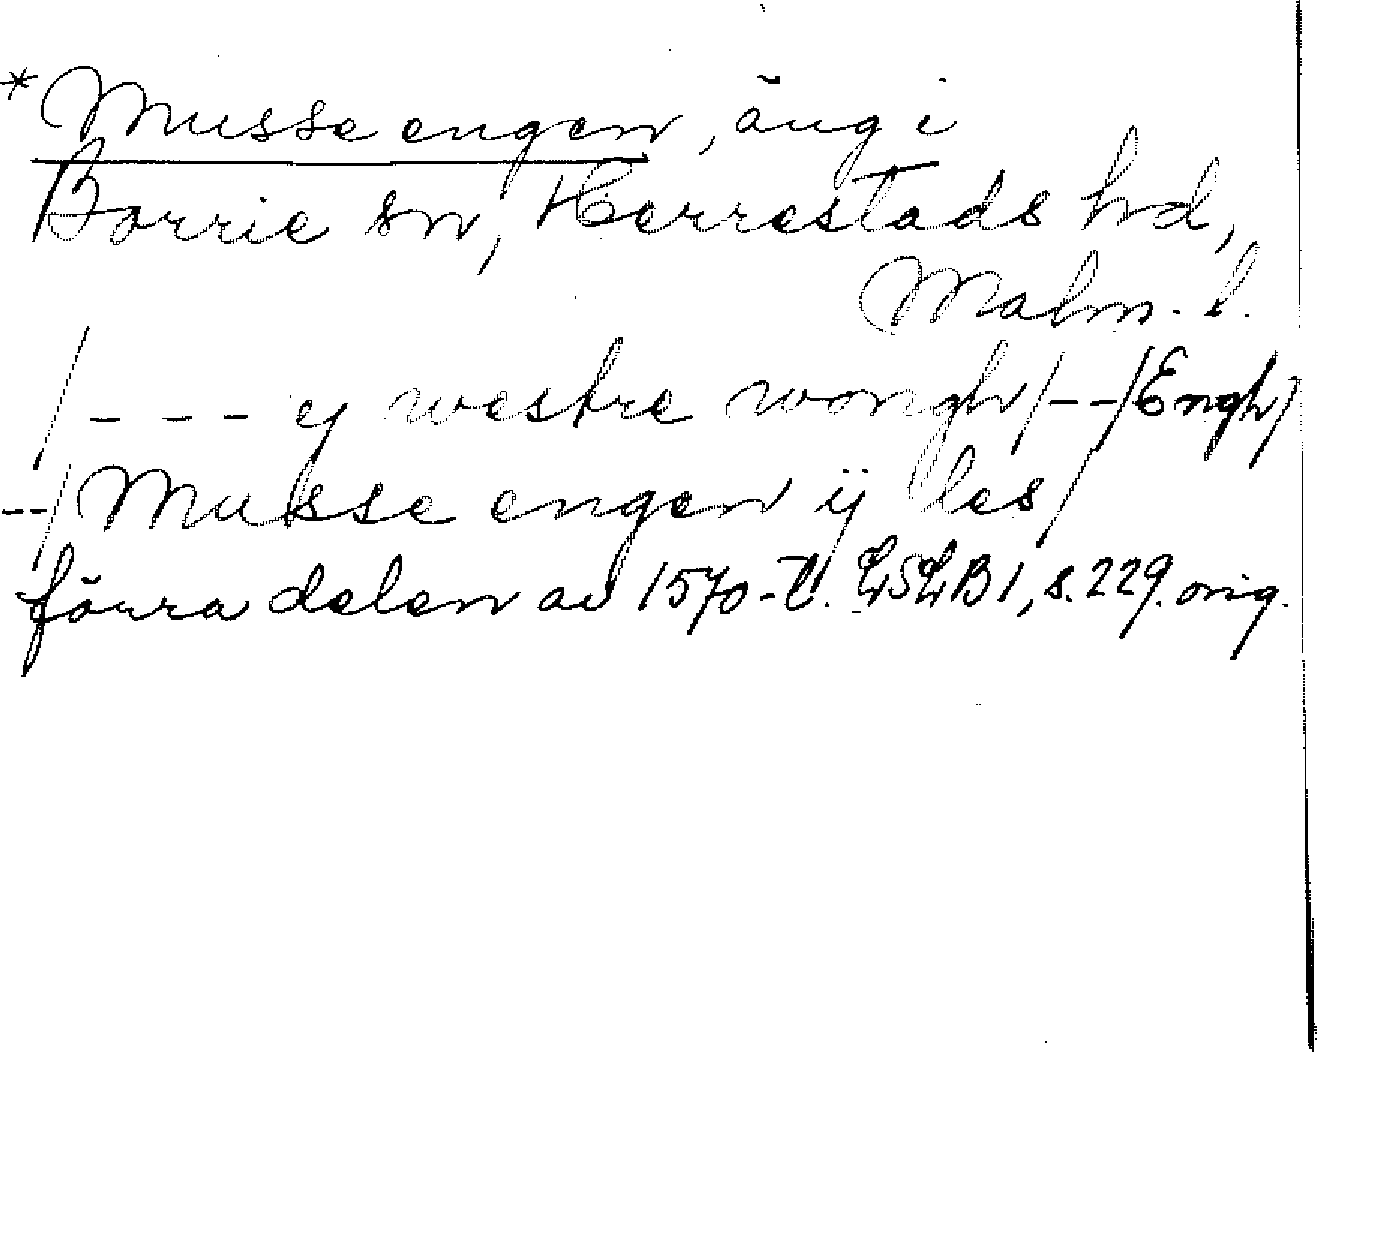 *Musse engen, äng i
Borrie sn, Herrestads hd,
Malm. l.
/--- ej westre wongh/--/Engh/
--/Musse engen ij les/
förra delen av 1570-t. LSLB1, s. 229. orig.